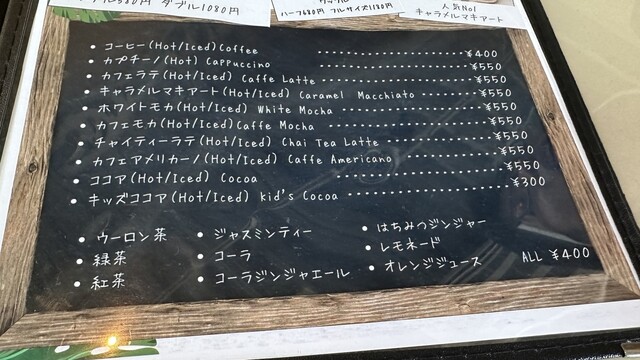 580円 ダブル1080円
ハーフ680円 フルサイズ1180円
人気No1
キャラメルマキアート
• コーヒー(Hot/Iced)Coffee ¥400
• カプチーノ(Hot) Cappuccino ¥550
• カフェラテ(Hot/Iced) Caffe Latte ¥550
• キャラメルマキアート(Hot/Iced) Caramel Macchiato ¥550
• ホワイトモカ(Hot/Iced) White Mocha ¥550
• カフェモカ(Hot/Iced)Caffe Mocha ¥550
• チャイティーラテ(Hot/Iced) Chai Tea Latte ¥550
• カフェアメリカーノ(Hot/Iced) Caffe Americano ¥550
• ココア(Hot/Iced) Cocoa ¥550
• キッズココア(Hot/Iced) kid's Cocoa ¥300
• ウーロン茶 • ジャスミンティー • はちみつジンジャー
• 緑茶 • コーラ • レモネード
• 紅茶 • コーラジンジャエール • オレンジジュース ALL ¥400